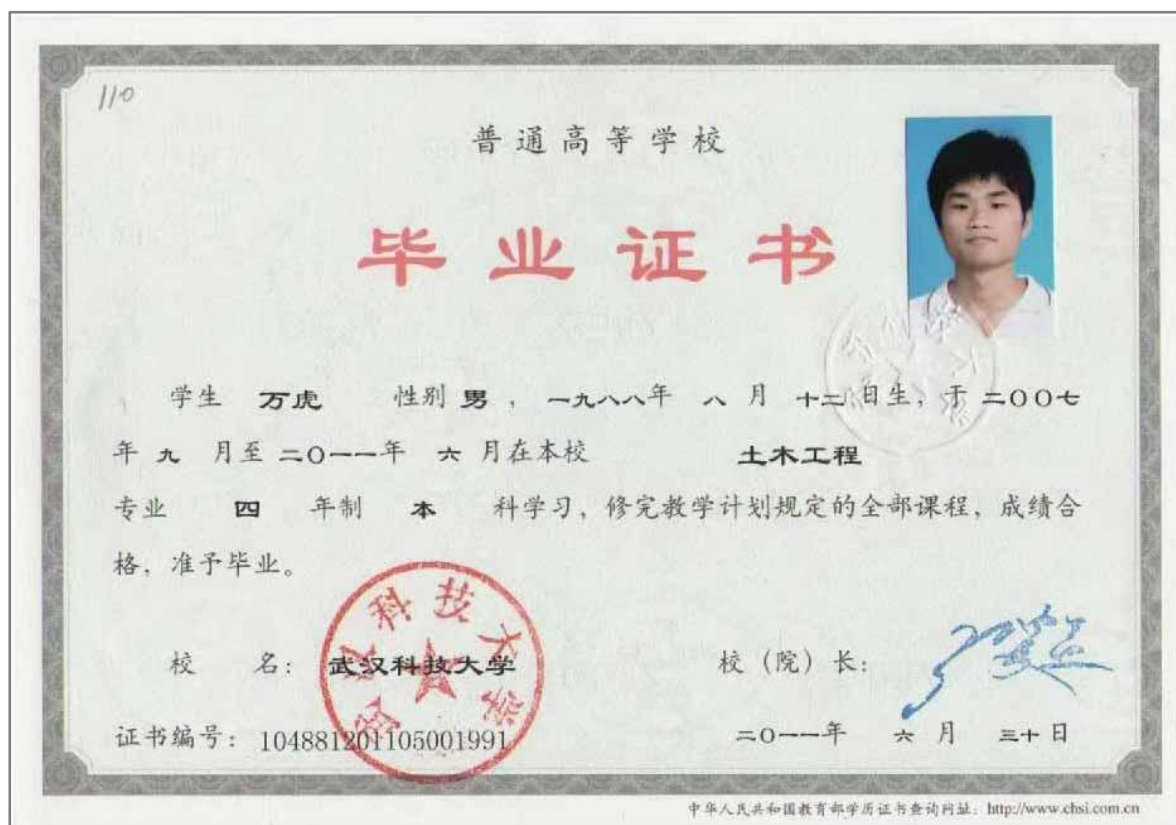 110
普通高等学校
毕业证书
学生 万虎 性别 男，一九八八年 八 月 十二 日生，于 二〇〇七
年 九 月至 二〇一一年 六 月在本校 土木工程
专业 四 年制 本 科学习，修完教学计划规定的全部课程，成绩合
格，准予毕业。
武汉科技大学
校 名：武汉科技大学 校（院）长：
证书编号：104881201105001991 二〇一一年 六 月 三十 日
中华人民共和国教育部学历证书查询网址：http://www.chsi.com.cn